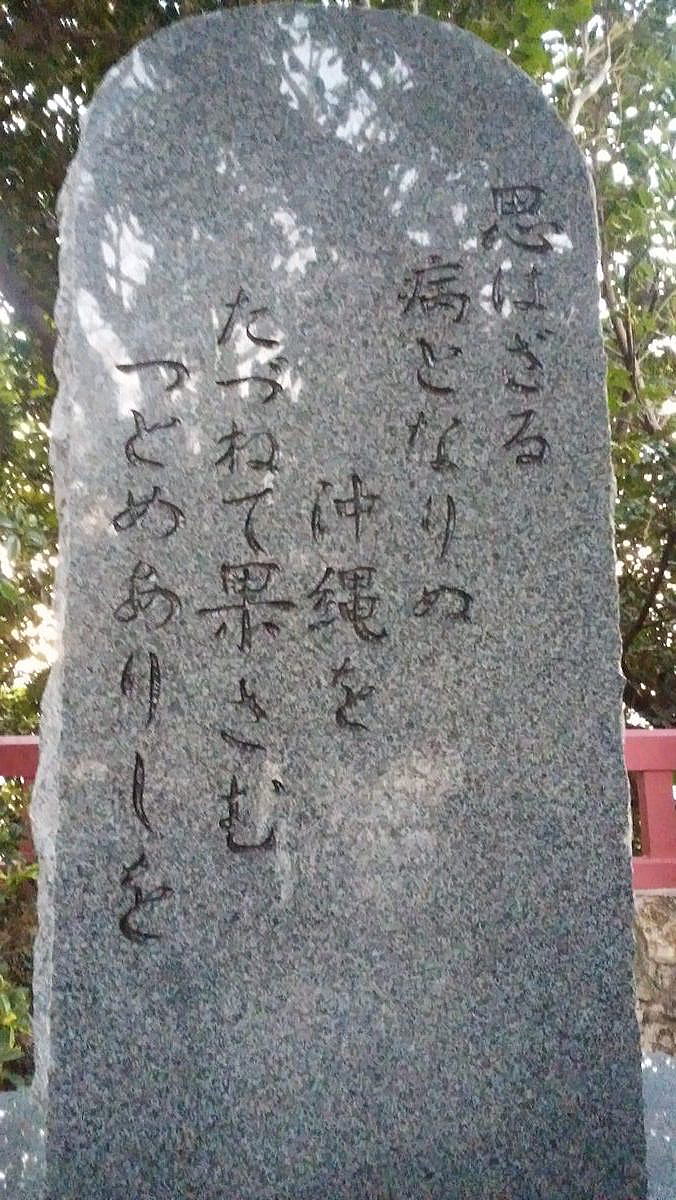 思はざる
病となりぬ
沖縄を
たづねて果さむ
つとめありしを